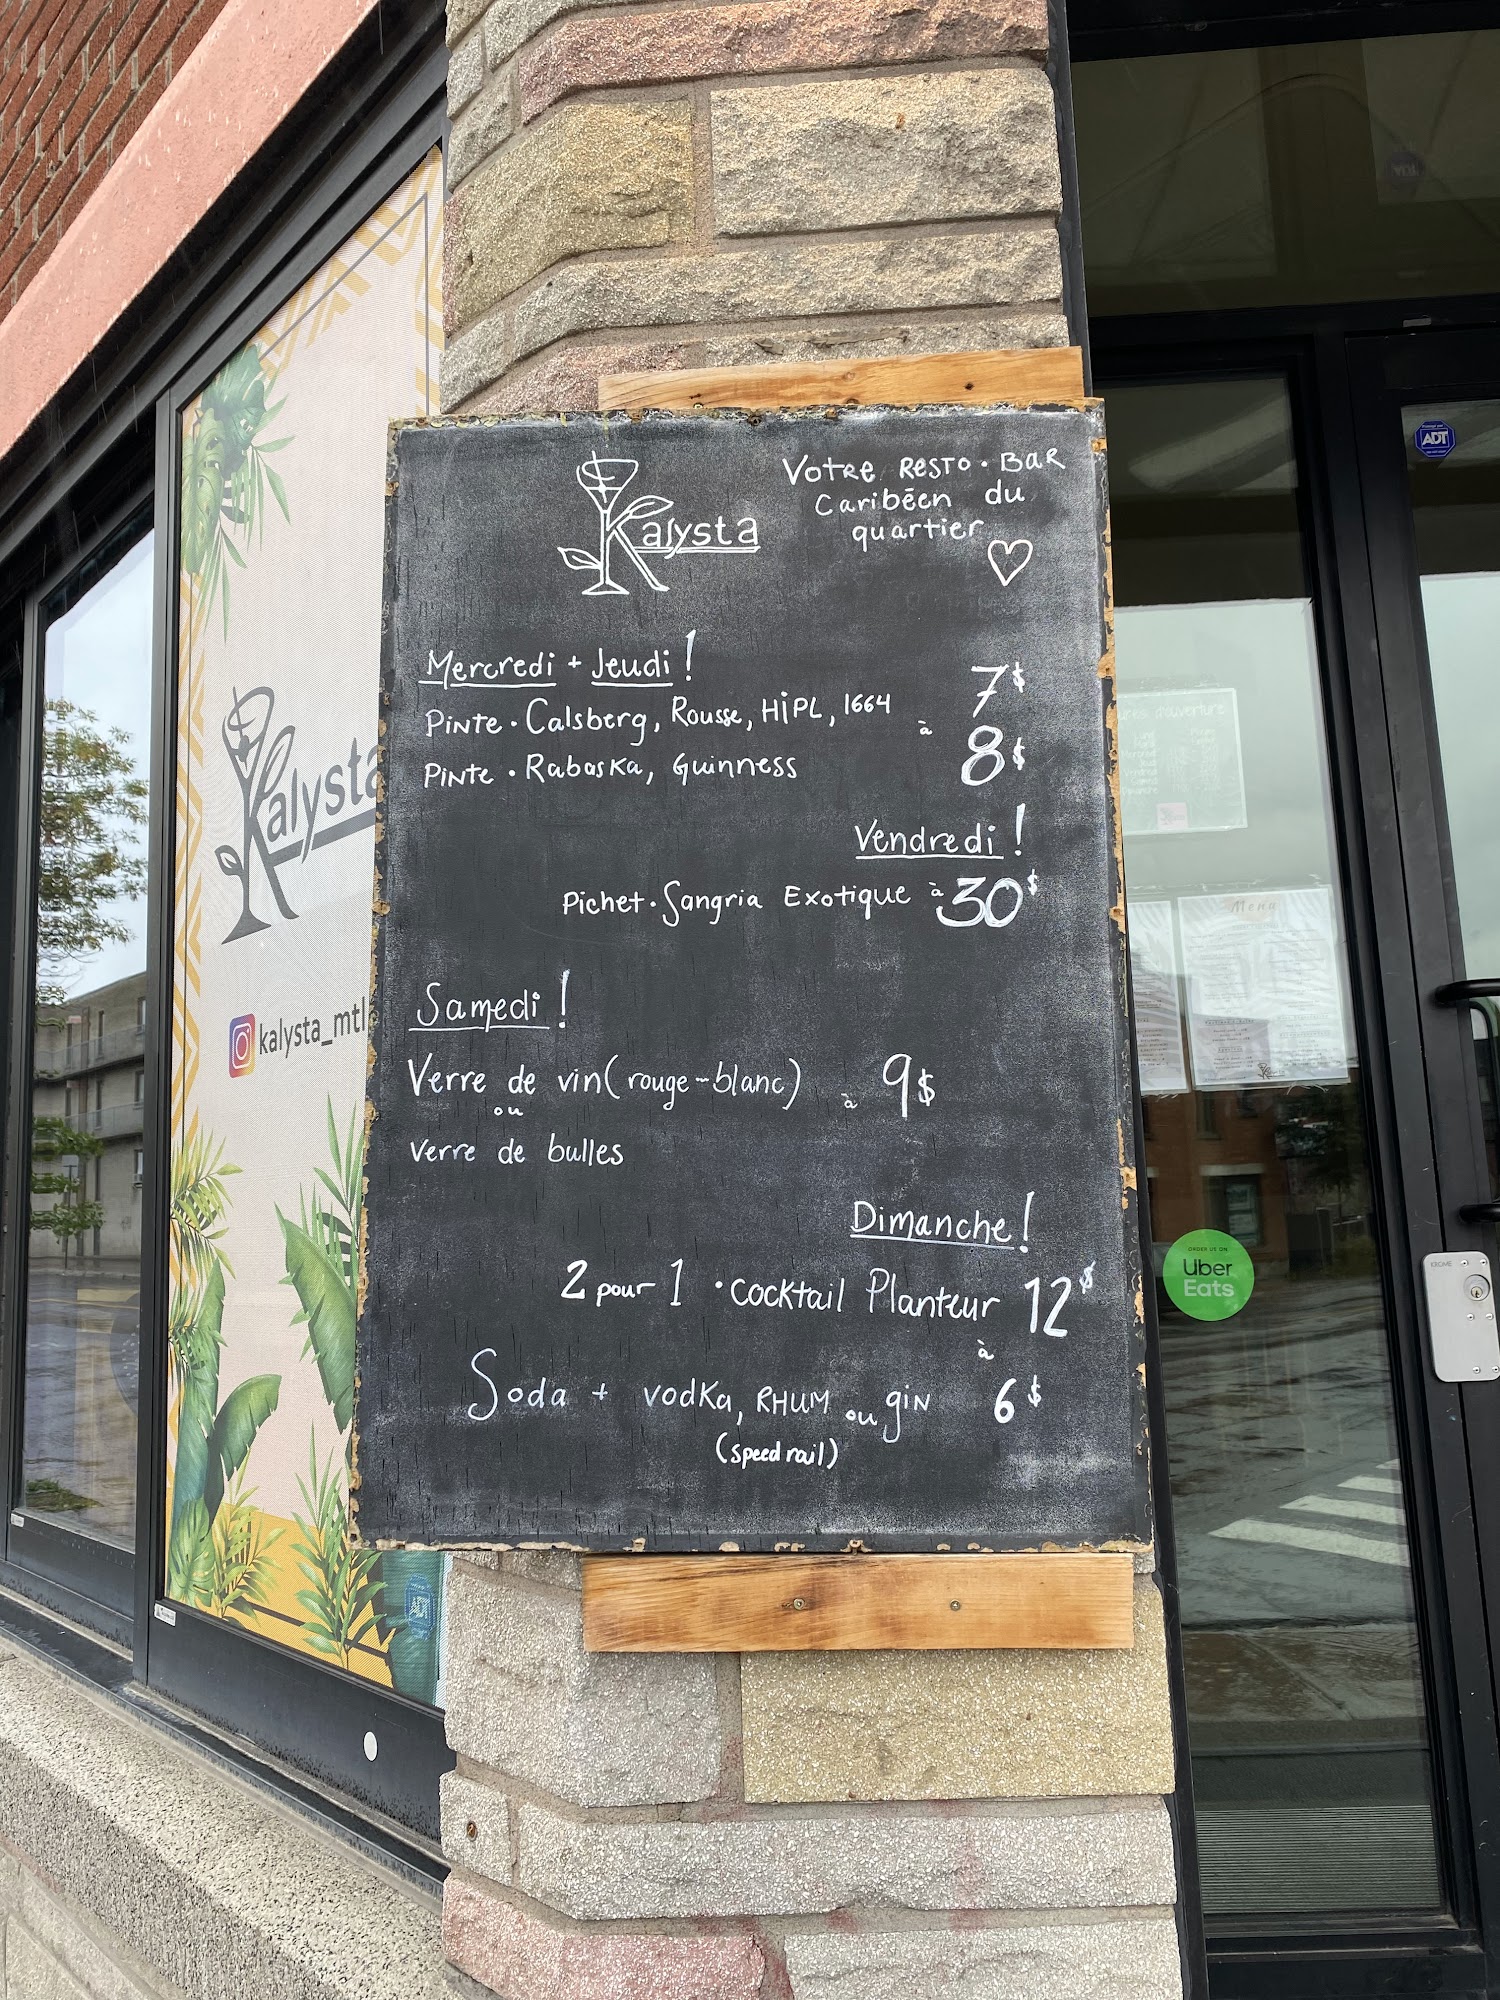 Kalysta
Votre Resto • Bar
Caribéen du
quartier
Mercredi + Jeudi !
Pinte • Calsberg, Rousse, HiPL, 1664
à
7$
Pinte • Rabaska, Guinness
8$
Vendredi !
Pichet • Sangria Exotique à 30$
Samedi !
Verre de vin (rouge-blanc) à 9$
ou
verre de bulles
Dimanche !
2 pour 1 • Cocktail Planteur 12$
à
Soda + vodka, RHUM ou gin 6$
(speed rail)
Kalysta
kalysta_mtl
ADT
Menu
ORDER US ON
Uber
Eats
ADT